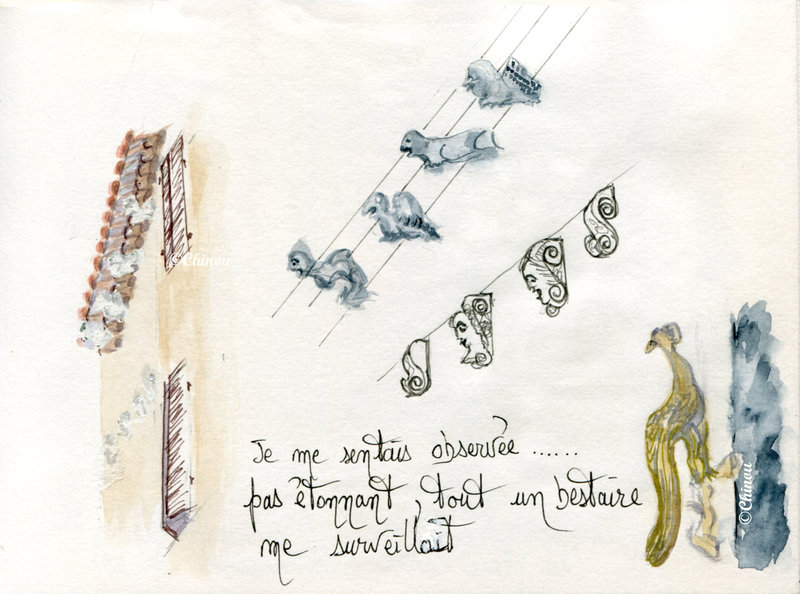 © Chinou
Je me sentais observée ......
pas étonnant, tout un bestaire
me surveillait
© Chinou